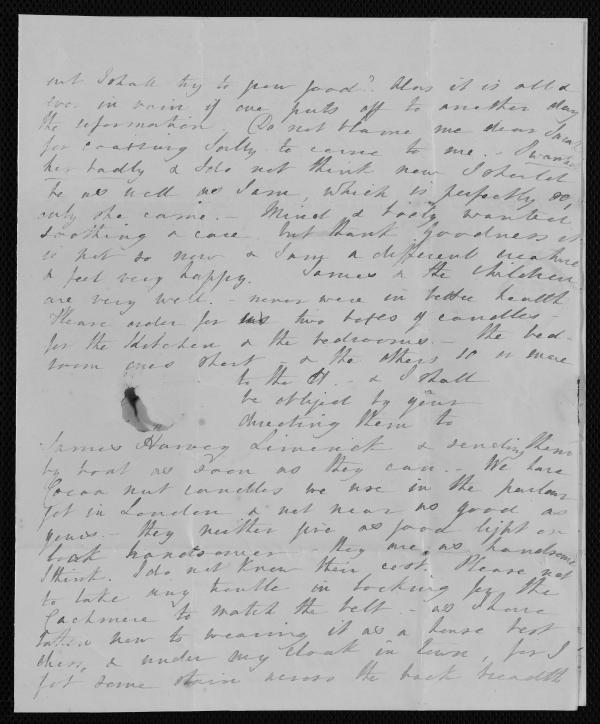 out I shall try to pew good? Alas it is all &
ever in vain if one puts off to another day
the reformation. Do not blame me dear Sarah
for coaxing Sally to come to me - I wanted
her badly & I do not think now I should
be as well as I am, which is perfectly so,
only she came. - Mind & body wanted
soothing & care but thank goodness it
is not so now & I am a different creature
& feel very happy. James & the Children
are very well. - never were in better health
Please order for us two boxes of candles -
for the Kitchen & the bedrooms. - The bed-
room ones short - & the others 10 or more
to the lt. - & I shall
be obliged by your
directing them to
James Harvey Limerick & sending them
by boat as soon as they can. - We have
Cocoa nut candles we use in the parlour
got in London & not near as good as
yours. - they neither give as good light or
look handsomer - they are as handsome
I think. I do not know their cost. Please not
to take any trouble in looking for the
Cachmere to match the belt. - as I have
taken now to wearing it as a house best
dress, & under my cloak in town, for I
got some stain across the back breadth